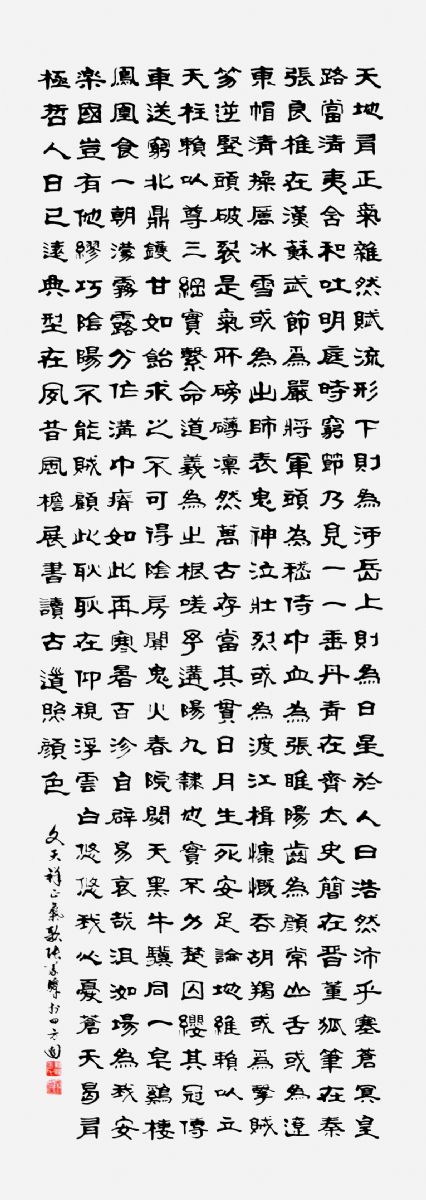 天地有正氣雜然賦流形下則為河岳上則為日星於人曰浩然沛乎塞蒼冥皇
路當清夷含和吐明庭時窮節乃見一一垂丹青在齊太史簡在晉董狐筆在秦
張良椎在漢蘇武節為嚴將軍頭為嵇侍中血為張睢陽齒為顏常山舌或為遼
東帽清操厲冰雪或為出師表鬼神泣壯烈或為渡江楫慷慨吞胡羯或為擊賊
笏逆豎頭破裂是氣所磅礴凜然萬古存當其貫日月生死安足論地維賴以立
天柱賴以尊三綱實繫命道義為之根嗟予遘陽九隸也實不力楚囚纓其冠傳
車送窮北鼎鑊甘如飴求之不可得陰房闃鬼火春院閟天黑牛驥同一皂雞棲
鳳凰食一朝濛霧露分作溝中瘠如此再寒暑百沴自辟易哀哉沮洳場為我安
楽國豈有他繆巧陰陽不能賊顧此耿耿在仰視浮雲白悠悠我心憂蒼天曷有
極哲人日已遠典型在夙昔風檐展書讀古道照顏色
文天祥正氣歌於四方園